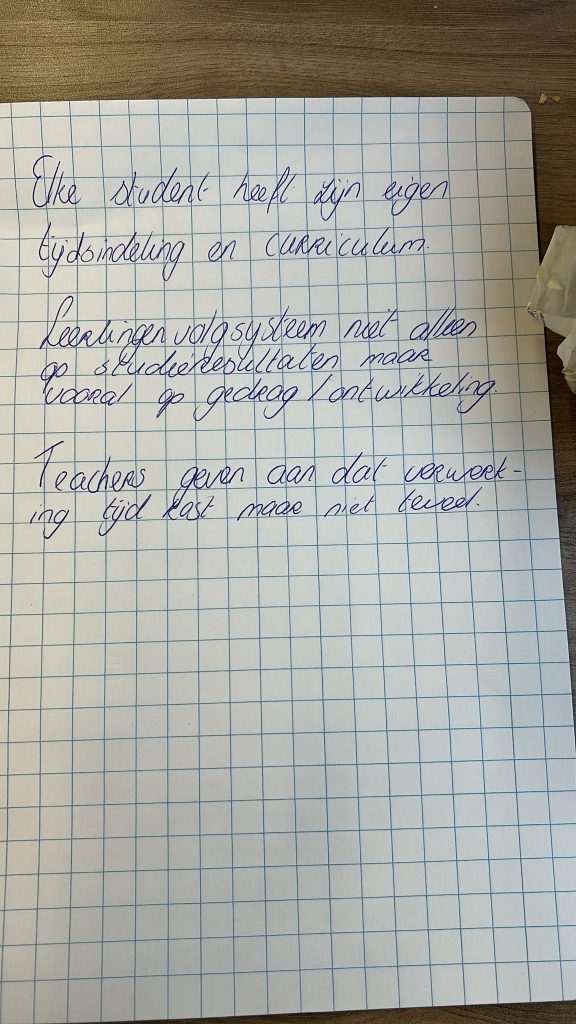 Elke student heeft zijn eigen
tijdsindeling en curriculum.
Leerlingen volgsysteem niet alleen
op studieresultaten maar
vooral op gedrag / ontwikkeling.
Teachers geven aan dat verwerk-
ing tijd kost maar niet teveel.